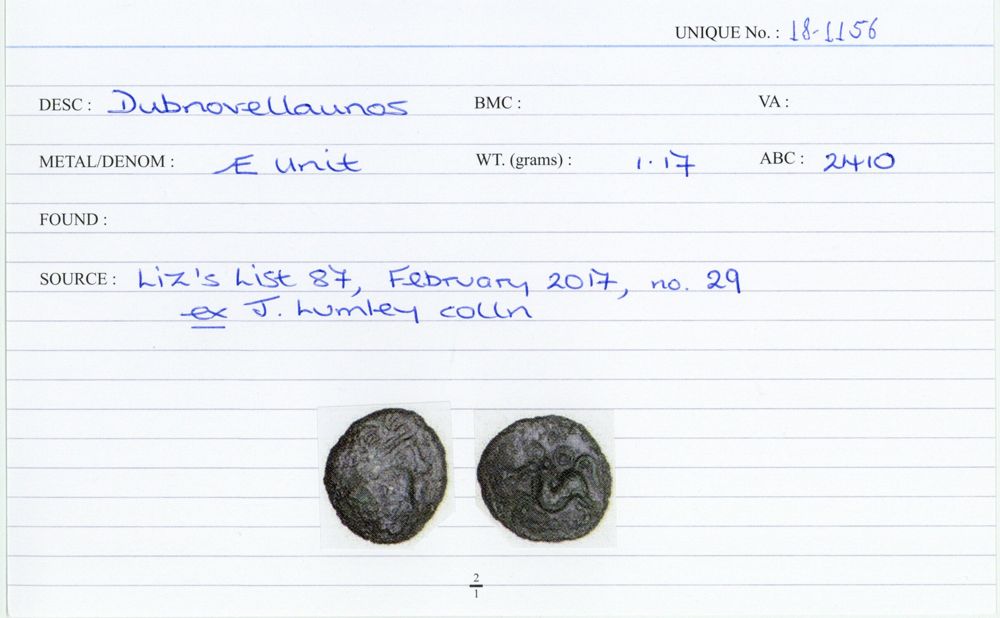 UNIQUE No. : 18-1156
DESC : Dubnovellaunos BMC : VA :
METAL/DENOM : Æ Unit WT. (grams) : 1.17 ABC : 2410
FOUND :
SOURCE : Liz's List 87, February 2017, no. 29
ex J. Lumley colln
2
1